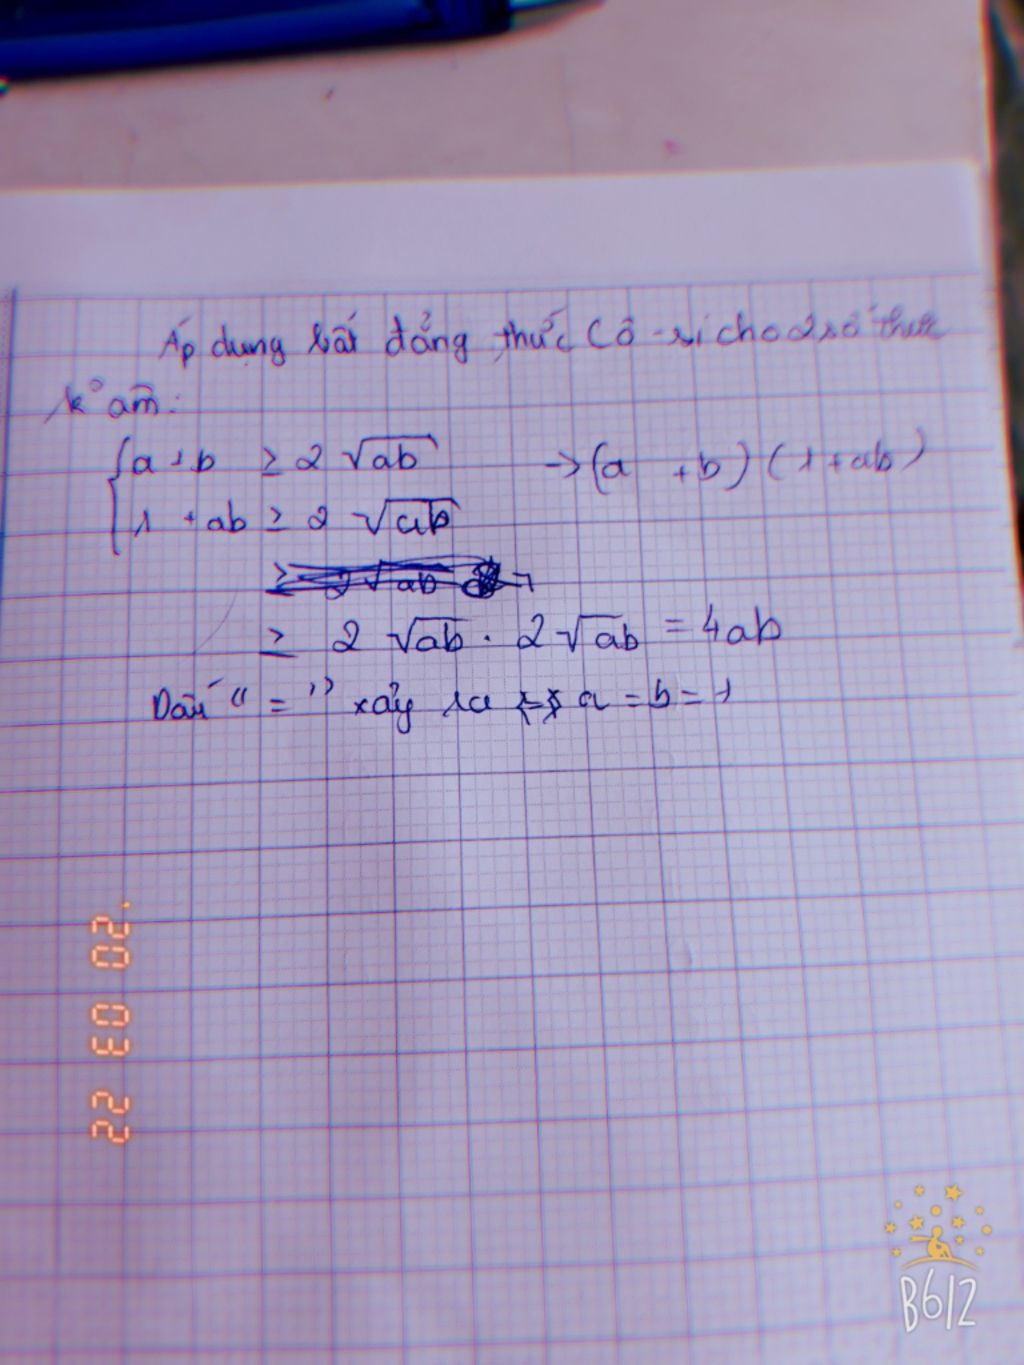 Áp dụng bất đẳng thức Cô-si cho 2 số thực
k° âm:
{a + b ≥ 2 √ab → (a + b) (1 + ab)
1 + ab ≥ 2 √ab
≥ 2 √ab
≥ 2 √ab . 2 √ab = 4ab
Dấu " = " xảy ra <=> a = b = 1
22 03 '20
B612